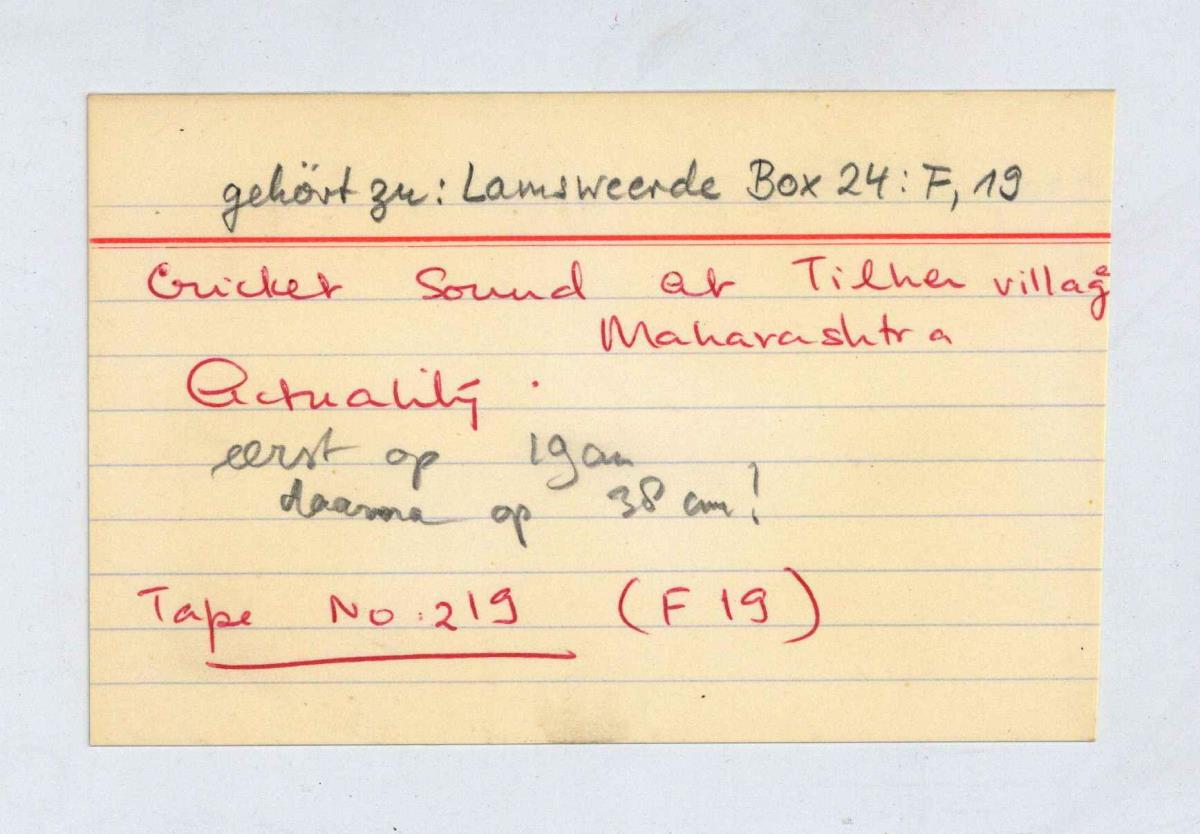 gehört zu: Lamsweerde Box 24: F, 19
Cricket Sound at Tilher village
Maharashtra
Actuality.
eerst op 19 cm
daarna op 38 cm!
Tape No: 219 (F 19)